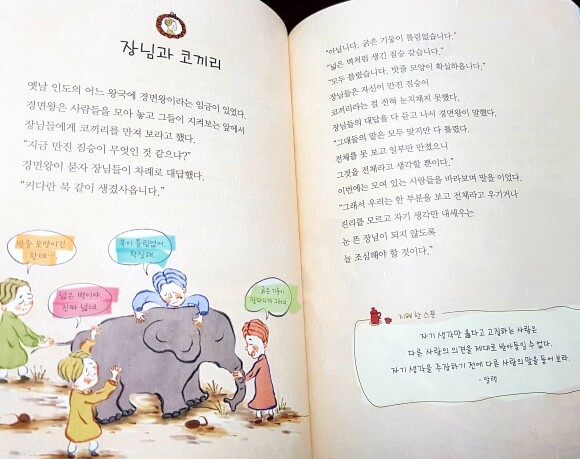 장님과 코끼리
옛날 인도의 어느 왕국에 경면왕이라는 임금이 있었다.
경면왕은 사람들을 모아 놓고 그들이 지켜보는 앞에서
장님들에게 코끼리를 만져 보라고 했다.
“지금 만진 짐승이 무엇인 것 같으냐?”
경면왕이 묻자 장님들이 차례로 대답했다.
“커다란 북 같이 생겼사옵니다.”
밧줄 모양이긴
한데…
북이 틀림없어
확실해.
넓은 벽이야.
진짜 넓네.
굵은 기둥이
맞다니까 그러네
“아닙니다. 굵은 기둥이 틀림없습니다.”
“넓은 벽처럼 생긴 짐승 같습니다.”
“모두 틀렸습니다. 밧줄 모양이 확실하옵니다.”
장님들은 자신이 만진 짐승이
코끼리라는 걸 전혀 눈치채지 못했다.
장님들의 대답을 다 듣고 나서 경면왕이 말했다.
“그대들의 말은 모두 맞지만 다 틀렸다.
전체를 못 보고 일부만 만졌으니
그것을 전체라고 생각할 뿐이다.”
이번에는 모여 있는 사람들을 바라보며 말을 이었다.
“그래서 우리는 한 부분을 보고 전체라고 우기거나
진리를 모르고 자기 생각만 내세우는
눈 뜬 장님이 되지 않도록
늘 조심해야 할 것이다.”
지혜 한 스푼
자기 생각만 옳다고 고집하는 사람은
다른 사람의 의견을 제대로 받아들일 수 없다.
자기 생각을 주장하기 전에 다른 사람의 말을 들어 보라.